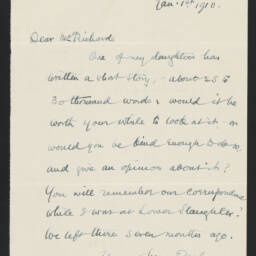 Jan. 1st 1910.
Dear Mr Richards
One of my daughters has
written a short story, - about 25 to
30 thousand words; would it be
worth your while to look at it, or
would you be kind enough to do so,
and give an opinion about it?
You will remember our correspondence
while I was at Lower Slaughter?
We left there seven months ago.